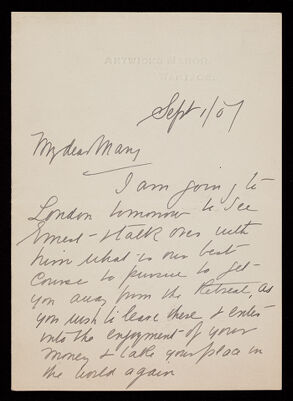 Sept 1/07
My dear Mary
I am going to
London tomorrow to see
Ernest - & talk over with
him what is our best
course to pursue to get
you away from the Retreat, as
you wish to leave there & enter
into the enjoyment of your
money & take your place in
the world again